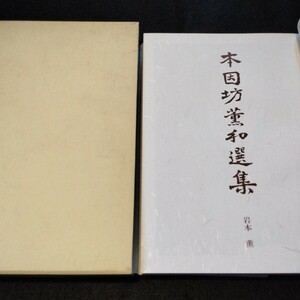 本因坊薫和選集
岩本 薫